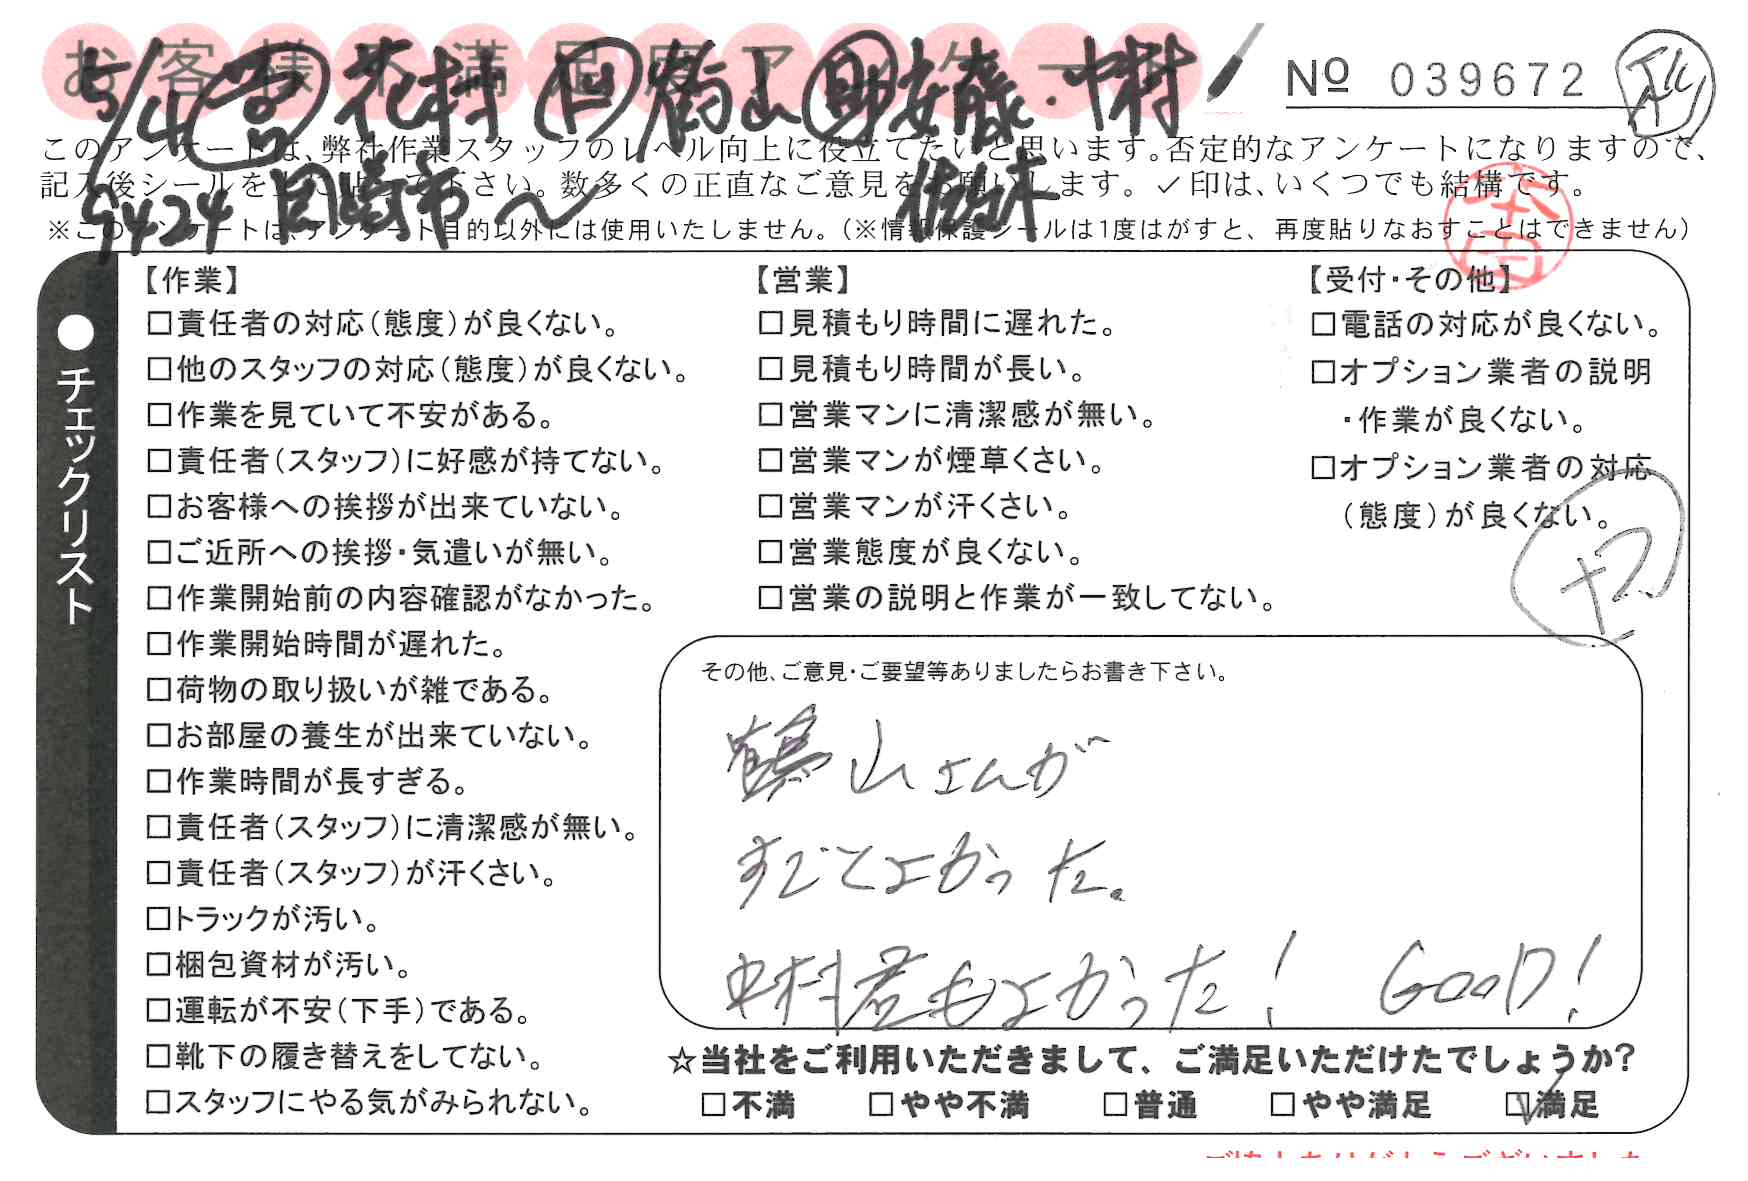 お客様不満足度アンケート
5/4 営 花村 回 鶴山 助 安藤・中村
佐々木
5424 岡崎市〜
Nº 039672
このアンケートは、弊社作業スタッフのレベル向上に役立てたいと思います。否定的なアンケートになりますので、
記入後シールを上に貼って下さい。数多くの正直なご意見をお願いします。✓印は、いくつでも結構です。
※このアンケートは、アンケート目的以外には使用いたしません。(※情報保護シールは1度はがすと、再度貼りなおすことはできません)
●チェックリスト
【作業】
□責任者の対応(態度)が良くない。
□他のスタッフの対応(態度)が良くない。
□作業を見ていて不安がある。
□責任者(スタッフ)に好感が持てない。
□お客様への挨拶が出来ていない。
□ご近所への挨拶・気遣いが無い。
□作業開始前の内容確認がなかった。
□作業開始時間が遅れた。
□荷物の取り扱いが雑である。
□お部屋の養生が出来ていない。
□作業時間が長すぎる。
□責任者(スタッフ)に清潔感が無い。
□責任者(スタッフ)が汗くさい。
□トラックが汚い。
□梱包資材が汚い。
□運転が不安(下手)である。
□靴下の履き替えをしてない。
□スタッフにやる気がみられない。
【営業】
□見積もり時間に遅れた。
□見積もり時間が長い。
□営業マンに清潔感が無い。
□営業マンが煙草くさい。
□営業マンが汗くさい。
□営業態度が良くない。
□営業の説明と作業が一致してない。
【受付・その他】
□電話の対応が良くない。
□オプション業者の説明
・作業が良くない。
□オプション業者の対応
(態度)が良くない。
+2
その他、ご意見・ご要望等ありましたらお書き下さい。
鶴山さんが
すごくよかった。
中村君もよかった! GooD!
☆当社をご利用いただきまして、ご満足いただけたでしょうか?
□不満 □やや不満 □普通 □やや満足 ☑満足